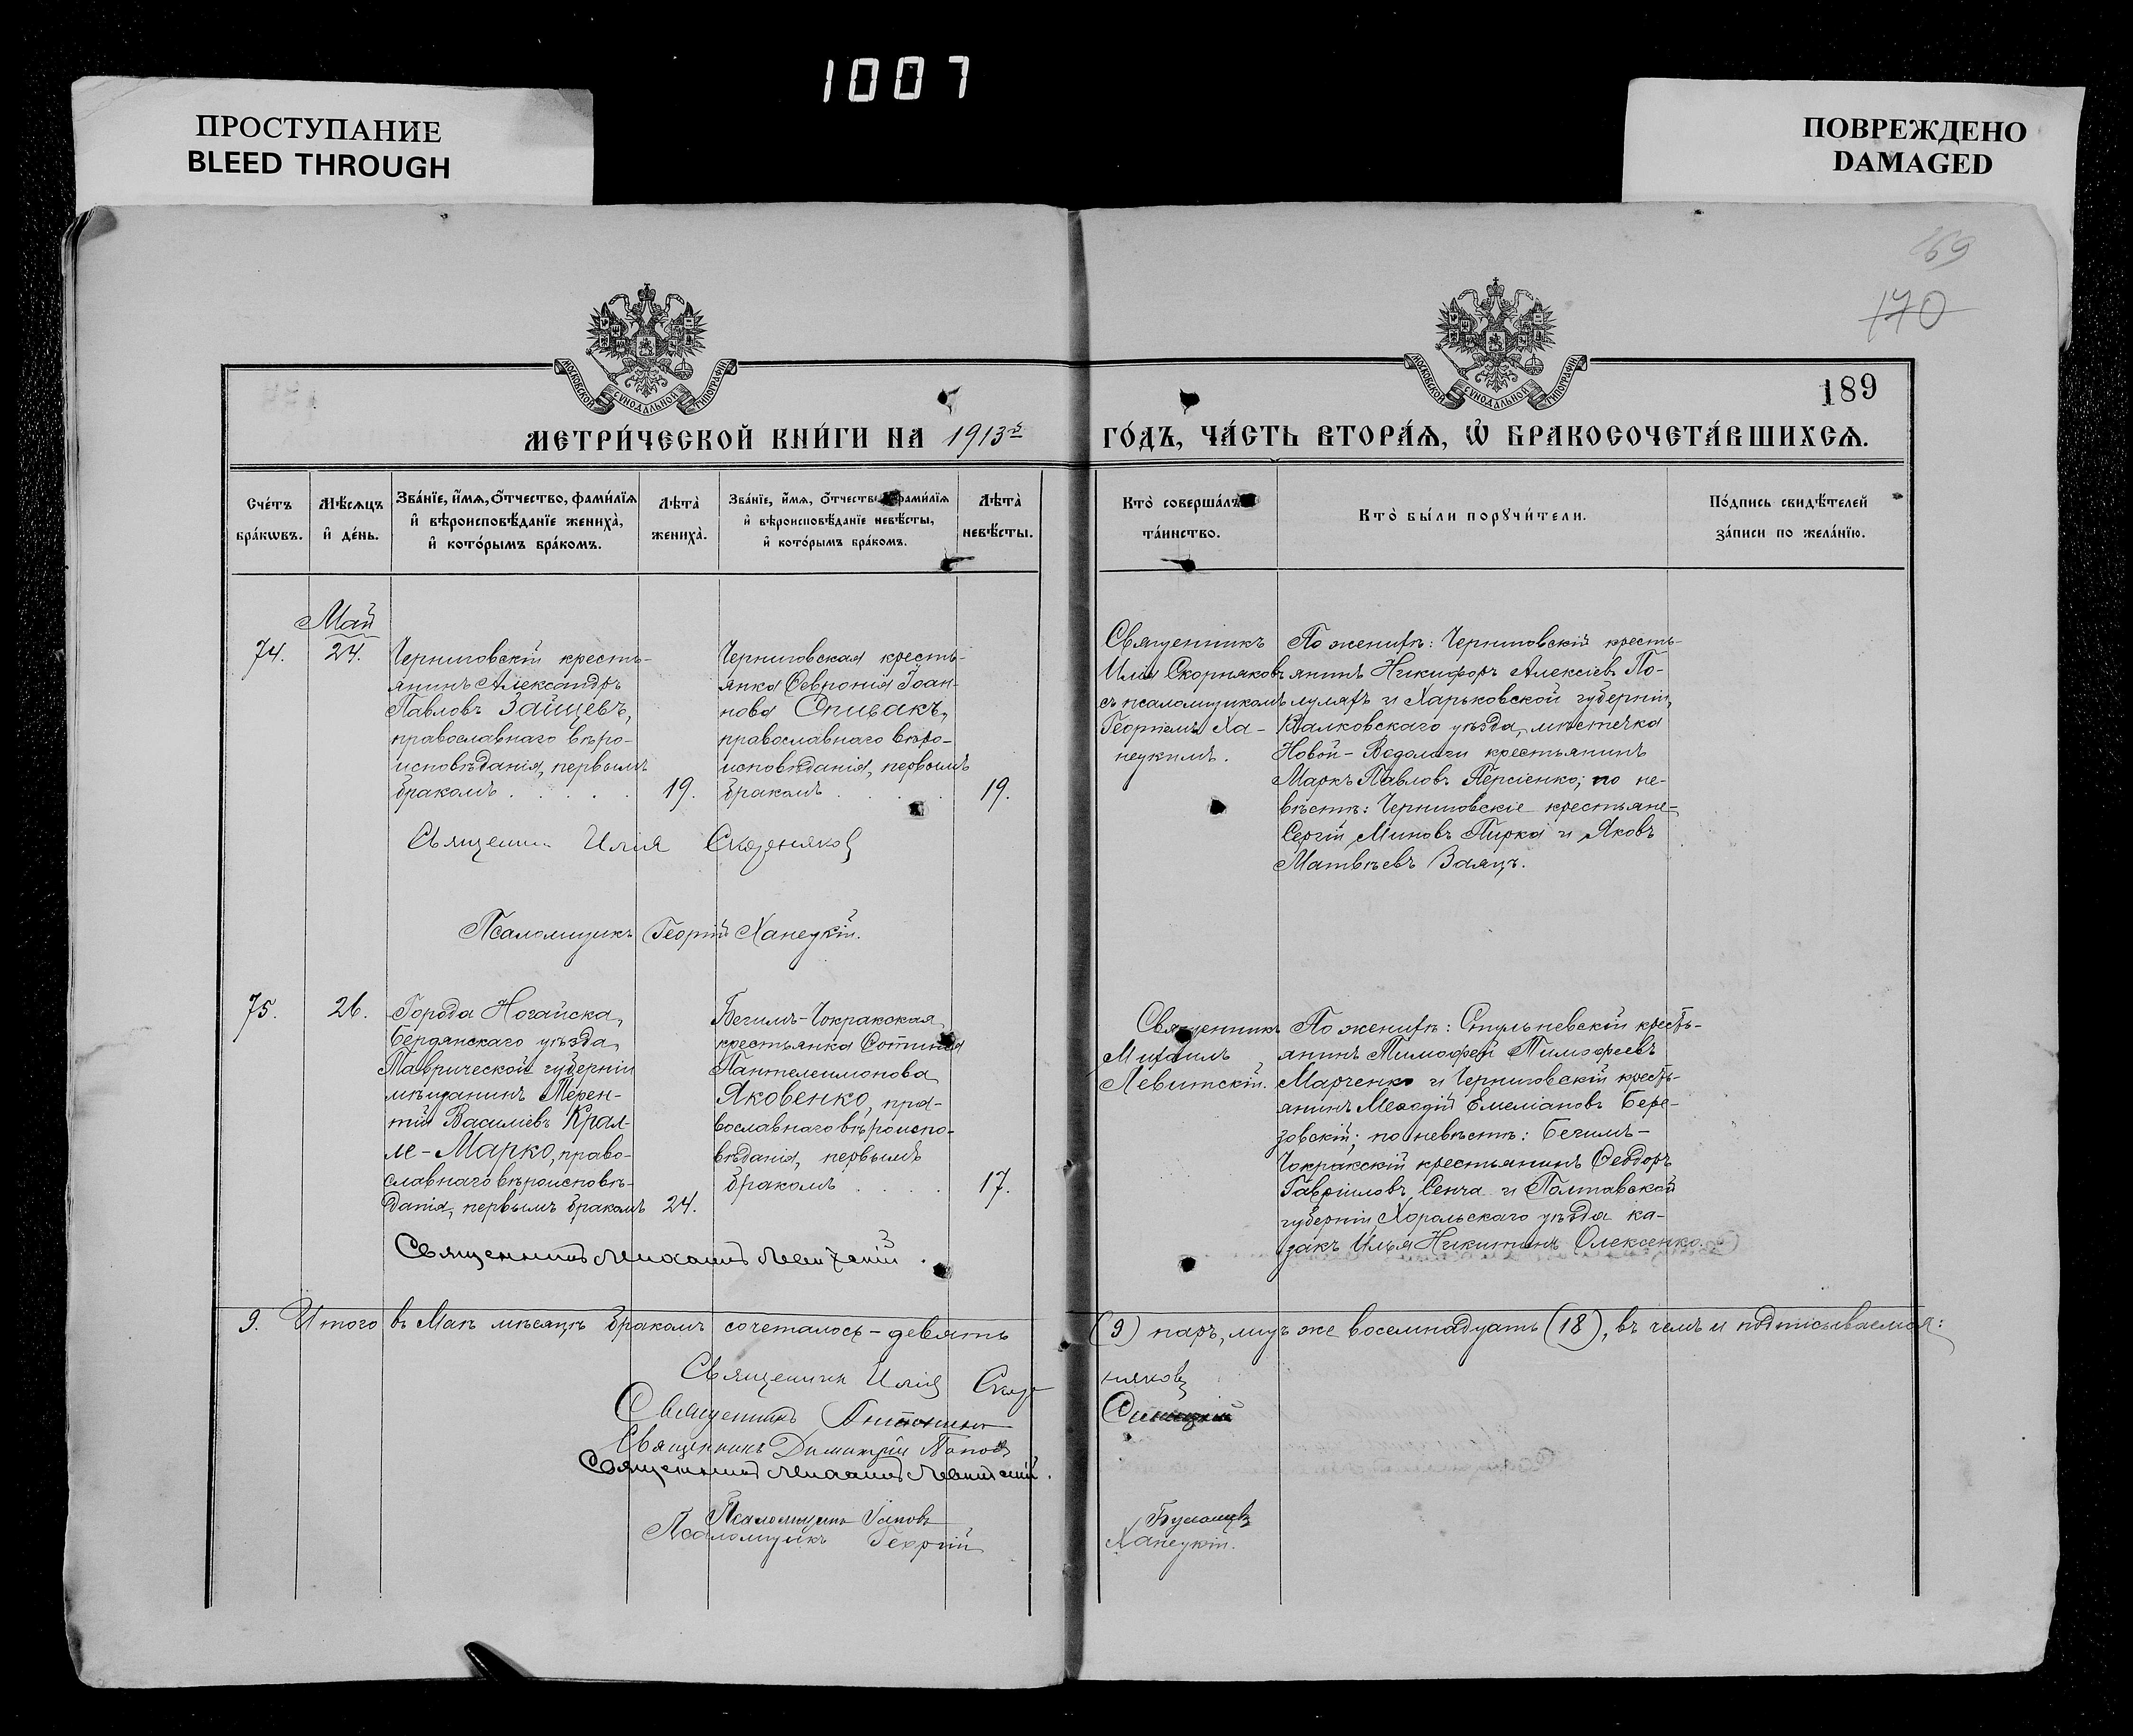 1007
ПРОСТУПАНИЕ
BLEED THROUGH
ПОВРЕЖДЕНО
DAMAGED
169
170
МОСКОВСКОЙ СѴНОДАЛЬНОЙ ТИПОГРАФІИ
МОСКОВСКОЙ СѴНОДАЛЬНОЙ ТИПОГРАФІИ
189
МЕТРИ́ЧЕСКОЙ КНИ́ГИ НА 1913й
ГО́ДЪ, ЧА́СТЬ ВТОРА́Ѧ, Ѡ҆ БРАКОСОЧЕТА́ВШИХСѦ.
Сче́тъ
бра́кѡвъ.
Мѣ́сѧцъ
и҆ де́нь.
Зва́нїе, и҆́мѧ, ѻ҆́тчество, фами́лїѧ
и҆ вѣроисповѣ́данїе жениха̀,
и҆ кото́рымъ бра́комъ.
Лѣта̀
жениха̀.
Зва́нїе, и҆́мѧ, ѻ҆́тчество, фами́лїѧ
и҆ вѣроисповѣ́данїе невѣ́сты,
и҆ кото́рымъ бра́комъ.
Лѣта̀
невѣ́сты.
Кто̀ соверша́лъ
та́инство.
Кто̀ бы́ли порꙋчи́тели.
По́дпись свидѣ́телей
за́писи по жела́нїю.
Май
74.
24.
Черниговскій кресть-
янинъ Александръ
Павловъ Зайцевъ,
православнаго вѣро-
исповѣданія, первымъ
бракомъ . . . . .
19.
Черниговская кресть-
янка Февронія Іоан-
нова Спивакъ,
православнаго вѣро-
исповѣданія, первымъ
бракомъ . . . .
19.
Священникъ
Илія Скорняковъ
съ псаломщикомъ
Георгіемъ Ха-
нецкимъ.
По женихѣ: Черниговскій кресть-
янинъ Никифоръ Алексіевъ По-
луляхъ и Харьковской губерніи,
Валковскаго уѣзда, мѣстечка
Новой-Водолаги крестьянинъ
Маркъ Павловъ Персіенко; по не-
вѣстѣ: Черниговскіе крестьяне-
Сергій Миновъ Пирка и Яковъ
Матвѣевъ Заяцъ.
Священник Илія Скорняковъ
Псаломщикъ Георгій Ханецкій.
75.
26.
Города Ногайска,
Бердянскаго уѣзда,
Таврической губерніи
мѣщанинъ Терен-
тій Василіевъ Крал-
ле-Марко, право-
славнаго вѣроисповѣ-
данія, первымъ бракомъ
24.
Бегимъ-Чокракская
крестьянка Фотинія
Пантелеимонова
Яковенко, пра-
вославнаго вѣроиспо-
вѣданія, первымъ
бракомъ . . . .
17.
Священникъ
Михаилъ
Левитскій.
По женихѣ: Стульневскій кресть-
янинъ Тимофей Тимофеевъ
Марченко и Черниговскій кресть-
янинъ Меѳодій Емеліановъ Бере-
зовскій; по невѣстѣ: Бегимъ-
Чокракскій крестьянинъ Ѳеодоръ
Гавріиловъ Сенча и Полтавской
губерніи, Хорольскаго уѣзда ка-
закъ Илья Никитинъ Олексенко.
Священникъ Михаилъ Левитскій.
9. Итого въ Маѣ мѣсяцѣ бракомъ сочеталось-девять
(9) паръ, лицъ же восемнадцать (18), въ чемъ и подписываемся:
Священник Илія Скор няковъ
Священникъ Антонинъ
Священникъ Димитрій Поповъ
Священникъ Михаилъ Левитскій.
Псаломщикъ
Псаломщикъ Георгій Ханецкій.